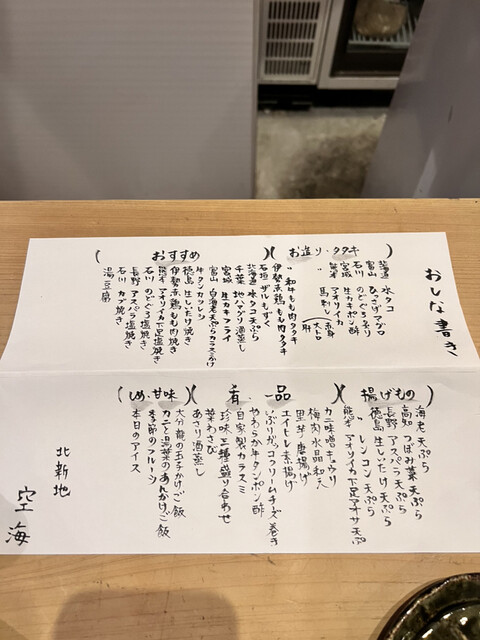 おしな書き
(お造り・タタキ)
北海道 水タコ
富山 ひっさげマグロ
石川 のどぐろ炙り
宮城 生カキポン酢
熊本 アオリイカ
〃 馬刺し(赤身 大トロ 肝
〃 和牛もも肉タタキ
伊勢赤鶏 もも肉タタキ
石垣 ザルもずく
(おすすめ)
北海道 水タコ天ぷら
千葉 地ハマグリ酒蒸し
宮城 生カキフライ
富山 白海老天ぷらカラスミがけ
牛タンカツレツ
徳島 生しいたけ焼き
伊勢赤鶏 もも肉焼き
熊本 アオリイカ下足塩焼き
石川 のどぐろ塩焼き
長野 アスパラ塩焼き
石川 カブ焼き
湯豆腐
(揚げもの)
海老天ぷら
高知 つぼみ菜天ぷら
長野 アスパラ天ぷら
徳島 生しいたけ天ぷら
〃 レンコン天ぷら
熊本 アオリイカ下足アオサ天ぷら
(肴 一品)
カニ味噌キュウリ
梅肉水晶和え
里芋唐揚げ
エイヒレ素揚げ
いぶりがっこクリームチーズ巻き
やわらか牛タンポン酢
自家製カラスミ
珍味三種盛り合わせ
葉わさび
あさり酒蒸し
(しめ・甘味)
大分 龍の玉子かけご飯
カニと湯葉のあんかけご飯
季節のフルーツ
本日のアイス
北新地
空海